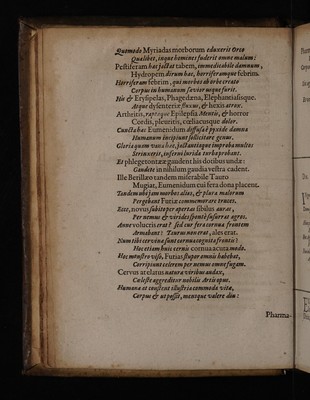 Quomodo Myriadas morborum eduxerit Orco
Qualibet, inque homines fuderit omne malum:
Pestiferam hac jactat tabem, immedicabile damnum,
Hydropem dirum hac, horriferamque febrim.
Horriferam febrim, qui morbus ab orbe creato
Corpus in humanum sævior usque furit.
Hic & Erysipelas, Phagedæna, Elephantiasisque.
Atque dysenteriæ fluxus, & hexis atrox.
Arthritis, raptoque Epilepsia Mentis, & horror
Cordis, pleuritis, cœliacusque dolor.
Cuncta hæc Eumenidum diffusa è pyxide damna
Humanum incipiunt sollicitare genus.
Gloria quem vana hæc, jactantiaque improba multos
Strinxerit, inferni lurida turba probant.
Et phlegetontææ gaudent his dotibus undæ:
Gaudete in nihilum gaudia vestra cadent.
Ille Berillæo tandem miserabile Tauro
Mugiat, Eumenidum cui fera dona placent.
Tandem ubi jam morbos alios, & plura malorum
Pergebant Furiæ commemorare truces.
Ecce, novus subito per apertas sibilus auras,
Per nemus & virides sponte susurrat agros.
Anne volucris erat? sed cur fera cornua fronte
Armabant? Taurus non erat, ales erat.
Num tibi cervina sunt cornua cognita frontis?
Hoc etiam huic cervix cornua acuta modo.
Hoc monstro viso, Furias stupor omnis habebat,
Corripiunt celerem per nemus omne fugam.
Cervus at elatus natura viribus audax,
Cœleste aggreditur nobilis Artis opus.
Humana ut constent illustria commoda vitæ,
Corpus & ut possit, mensque valere diu:
Pharma-